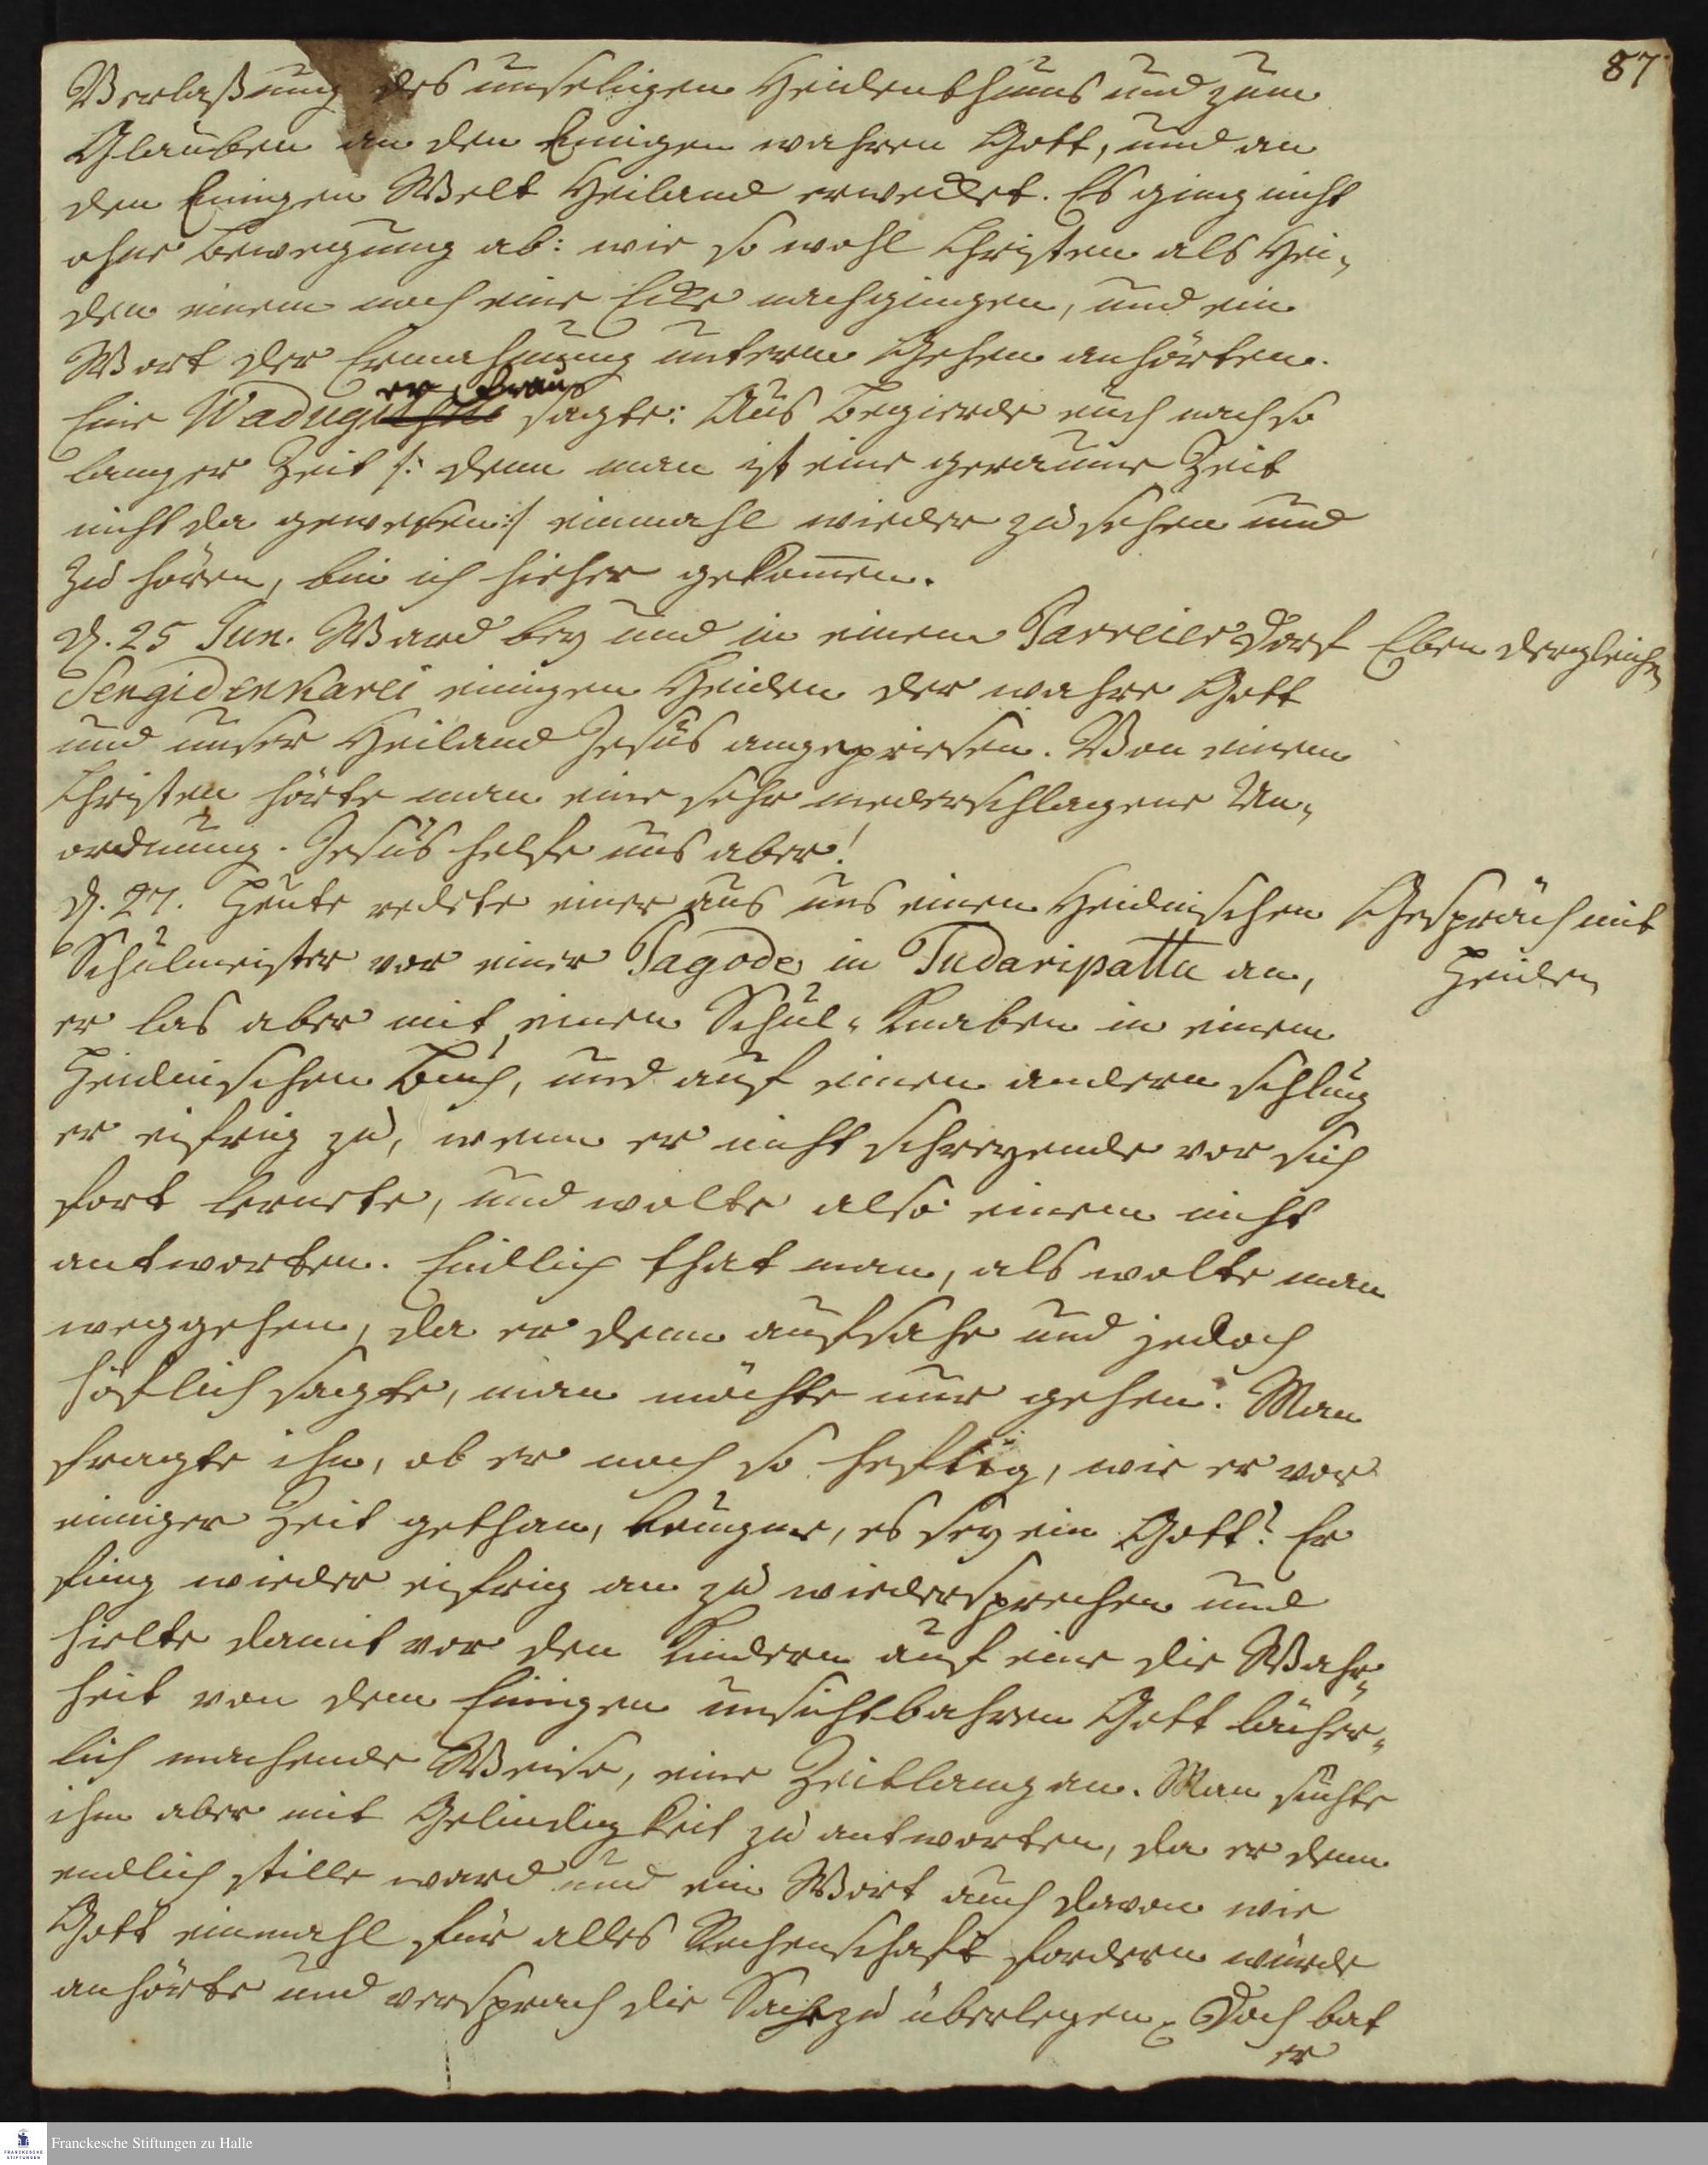 87
Verlaßung des unseligen Heidenthums und zum
Glauben an den Einigen wahren Gott, und an
den Einigen Welt Heiland erwecket. Es ging nicht
ohne Bewegung ab: wie so wohl Christen als Hei-
den einem noch eine Ecke nachgingen, und ein
Wort der Ermahnung unterm Gehen anhörten.
Eine Waduger Frau sagte: Aus Begierde euch nach so
langer Zeit /: denn man ist eine geraume Zeit
nicht da gewesen :/ einmahl wieder zu sehen und
zu hören, bin ich hieher gekommen.
D. 25 Jun. Ward bey und in einem Parreier Dorf
Eben dergleichen
Sengidenkarei einigen Heiden der wahre Gott
und unser Heiland Jesus angepriesen. Von einem
Christen hörte man eine sehr niederschlagene Un-
ordnung. Jesus helfe uns aber!
D. 27. Heute redete einer aus uns einen Heidnischen
Gespräch mit
Heiden
Schulmeister vor einer Pagode in Tudaripattu an,
er las aber mit einen Schul-Knaben in einem
Heidnischen Buch, und auf einen andern schlug
er eifrig zu, wenn er nicht schreyende vor sich
fort lernete, und wolte also einem nicht
antworten. Endlich that man, als wolte man
weggehen, da er denn aufsahe und jedoch
höflich sagte, man möchte nur gehen. Man
fragte ihn, ob er noch so heftig, wie er vor
einiger Zeit gethan, leugne, es sey ein Gott? Er
fing wieder eifrig an zu wiedersprechen und
hielte damit vor den Kindern auf eine die Wahr-
heit von dem Einigen unsichtbahren Gott lächer-
lich machende Weise, eine Zeitlang an. Man suchte
ihm aber mit Gelindigkeit zu antworten, da er denn
endlich stille ward und ein Wort auch davon wie
Gott einmahl für alles Rechenschaft fordern würde
anhörte und versprach die Sache zu überlegen. Doch bat
er
Franckesche Stiftungen zu Halle